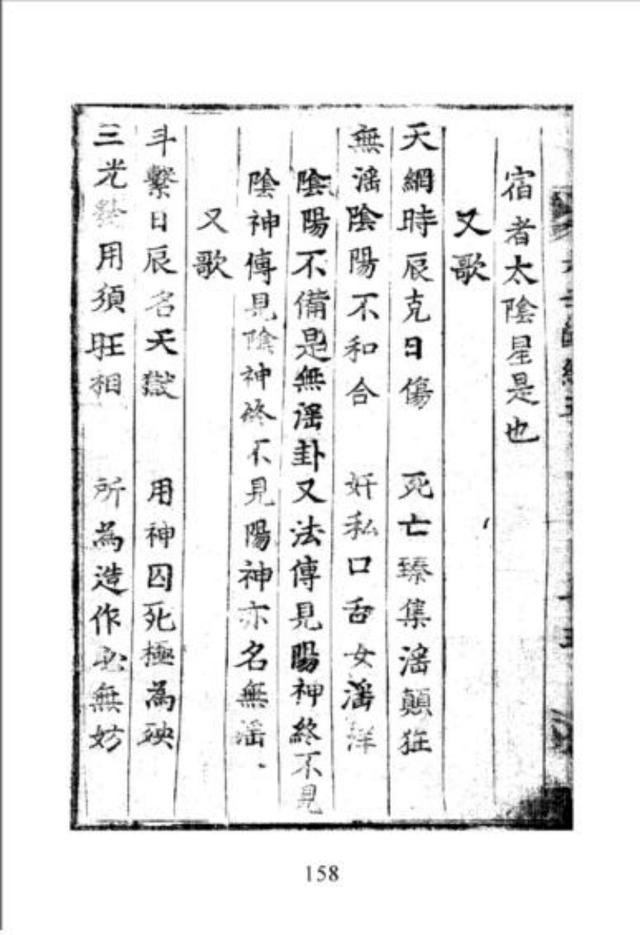 宿者太陰星是也
又歌
天網時辰克日傷　死亡臻集滛顛狂
無滛陰陽不和合　奸私口舌女滛洋
陰陽不備是無滛卦又法傳見陽神終不見
陰神傳見陰神終不見陽神亦名無滛
又歌
斗繫日辰名天獄　用神囚死極為殃
三光發用須旺相　所為造作必無妨
158